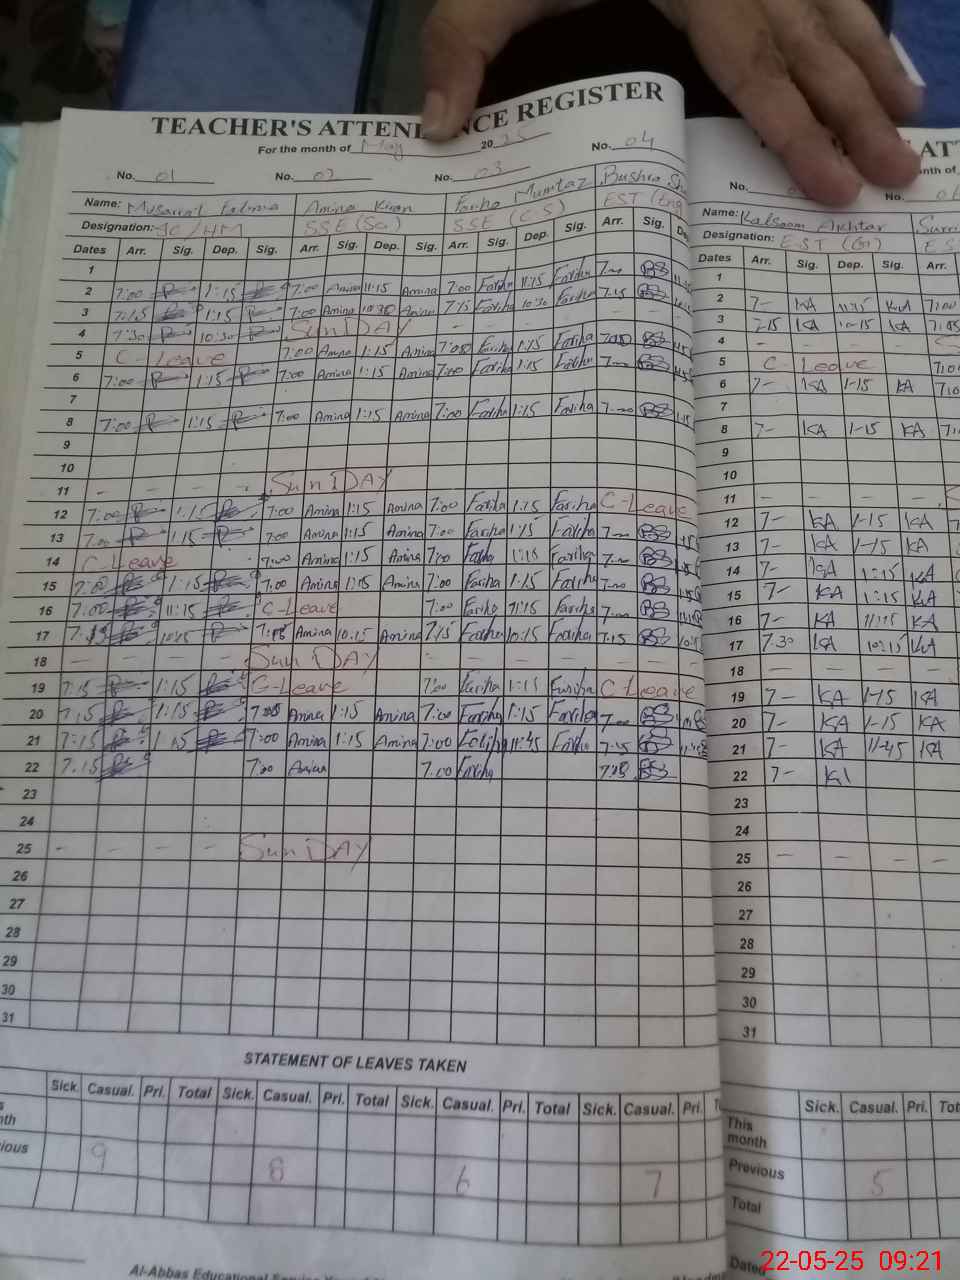 TEACHER'S ATTEN NCE REGISTER
For the month of May 2025
No. 01 No. 02 No. 03 No. 04
Name: Musarrat Fatima Amina Kiran Fariha Mumtaz Bushra Sh
Designation: SSE (Sc) SSE (CS) EST (Eng
Dates Arr. Sig. Dep. Sig. Arr. Sig. Dep. Sig. Arr. Sig. Dep. Sig. Arr. Sig. De
1
2 7:00 1:15 7:00 Amina 11:15 Amina 7:00 Fariha 11:15 Fariha 7-
3 7:15 1:15 7:00 Amina 10:30 Amina 7:15 Fariha 10:30 Fariha 7:15
4 7:30 10:30 SunDAY - - - -
5 C-Leave 7:00 Amina 1:15 Amina Fariha 1:15 Fariha
6 7:00 1:15 7:00 Amina 1:15 Amina 7:00 Fariha 1:15 Fariha 7-
7
8 7:00 1:15 7:00 Amina 1:15 Amina 7:00 Fariha 1:15 Fariha 7-
9
10
11 - - - - SunDAY
12 7:00 1:15 7:00 Amina 1:15 Amina 7:00 Fariha 1:15 Fariha C-Leave
13 7:00 1:15 7:00 Amina 1:15 Amina 7:00 Fariha 1:15 Fariha 7-
14 C-Leave 7:00 Amina 1:15 Amina 7:00 Fariha 1:15 Fariha 7-
15 7:00 1:15 7:00 Amina 1:15 Amina 7:00 Fariha 1:15 Fariha 7-
16 7:00 11:15 C-Leave 7:00 Fariha 11:15 Fariha 7-
17 10:15 Amina 10:15 Amina 7:15 Fariha 10:15 Fariha 7:15
18 - - - - SunDAY - - - - - -
19 7:15 1:15 C-Leave 7:00 Fariha 1:15 Fariha C Leave
20 7:15 1:15 Amina 1:15 Amina 7:00 Fariha 1:15 Fariha 7-
21 7:15 1:15 7:00 Amina 1:15 Amina 7:00 Fariha 11:45 Fariha
22 7:15 7:00 Amina 7:00 Fariha
23
24
25 - - - - SunDAY
26
27
28
29
30
31
STATEMENT OF LEAVES TAKEN
Sick. Casual. Pri. Total Sick. Casual. Pri. Total Sick. Casual. Pri. Total Sick. Casual. Pri. T
nth
ious 9 8 6 7
Al-Abbas Educational
ATT
nth of
No. No. 06
Name: Kalsoom Akhtar
Designation: EST (G)
Dates Arr. Sig. Dep. Sig. Arr.
1
2 7- KA 11:15 KA 7:00
3 7-15 KA 10-15 KA
4 - - - -
5 C- Leave
6 7- KA 1-15 KA
7
8 7- KA 1-15 KA
9
10
11 - - - -
12 7- KA 1-15 KA
13 7- KA 1-15 KA
14 7- KA 1:15 KA
15 7- KA 1:15 KA
16 7- KA 11:15 KA
17 7.30 KA 10:15 KA
18 - - - -
19 7- KA 1-15 KA
20 7- KA 1-15 KA
21 7- KA 11-45 KA
22 7- KA
23
24
25 - - - -
26
27
28
29
30
31
Sick. Casual. Pri. Tot
This month
Previous 5
Total
Dated
22-05-25 09:21